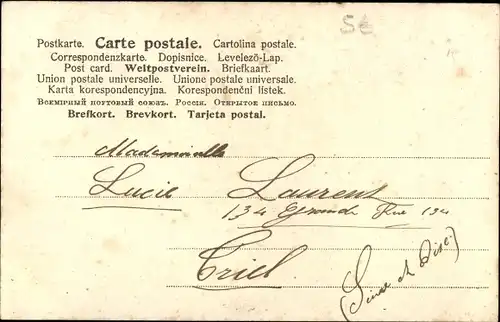 5€
Postkarte. Carte postale. Cartolina postale.
Correspondenzkarte. Dopisnice. Levelező-Lap.
Post card. Weltpostverein. Briefkaart.
Union postale universelle. Unione postale universale.
Karta korespondencyjna. Korespondenční lístek.
Всемірный почтовый союзъ. Россія. Открытое письмо.
Brefkort. Brevkort. Tarjeta postal.
Mademoiselle
Lucie Laurent
134 Grande Rue 134
Triel
(Seine et Oise)